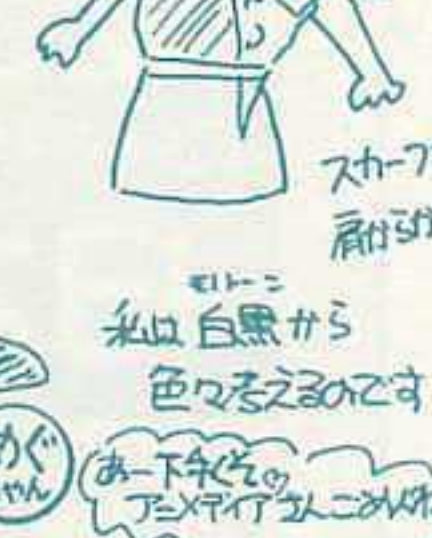 スカーフ
肩からか
モノトーン
私は白黒から
色々考えるのです
めぐ
ちゃん
あー下手くそ♡
アニメディアさんごめんね